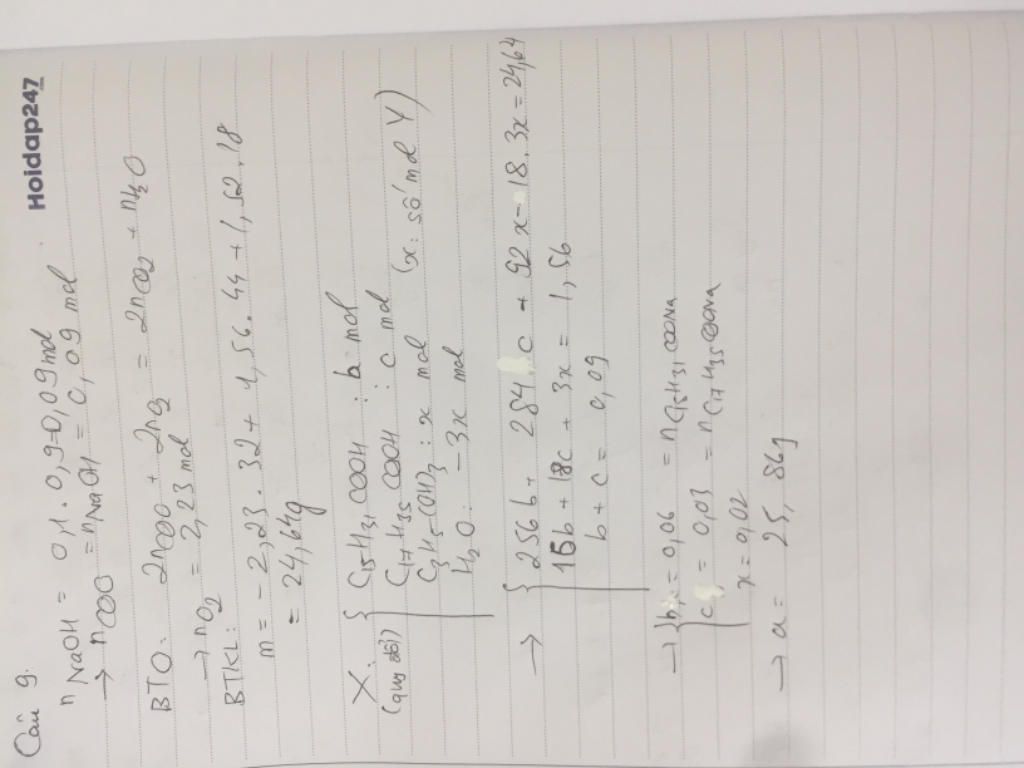 Câu 9. Hoidap247
nNaOH = 0,1 . 0,9=0,09mol
→ nCOO = nNaOH = 0,09 mol
BTO: 2nCOO + 2nO2 = 2nCO2 + nH2O
→ nO2 = 2,23 mol
BTKL:
m = - 2,23 . 32 + 1,56 . 44 + 1,52 . 18
= 24,64g
X: { C15H31COOH : b mol
(quy đổi) C17H35COOH : c mol
C3H5(OH)3 : x mol (x: số mol Y)
H2O: -3x mol
→ { 256b + 284c + 92x - 18.3x = 24,64
16b + 18c + 3x = 1,56
b + c = 0,09
→ { b = 0,06 = nC15H31COONa
c = 0,03 = nC17H35COONa
x = 0,02
→ a = 25,86g